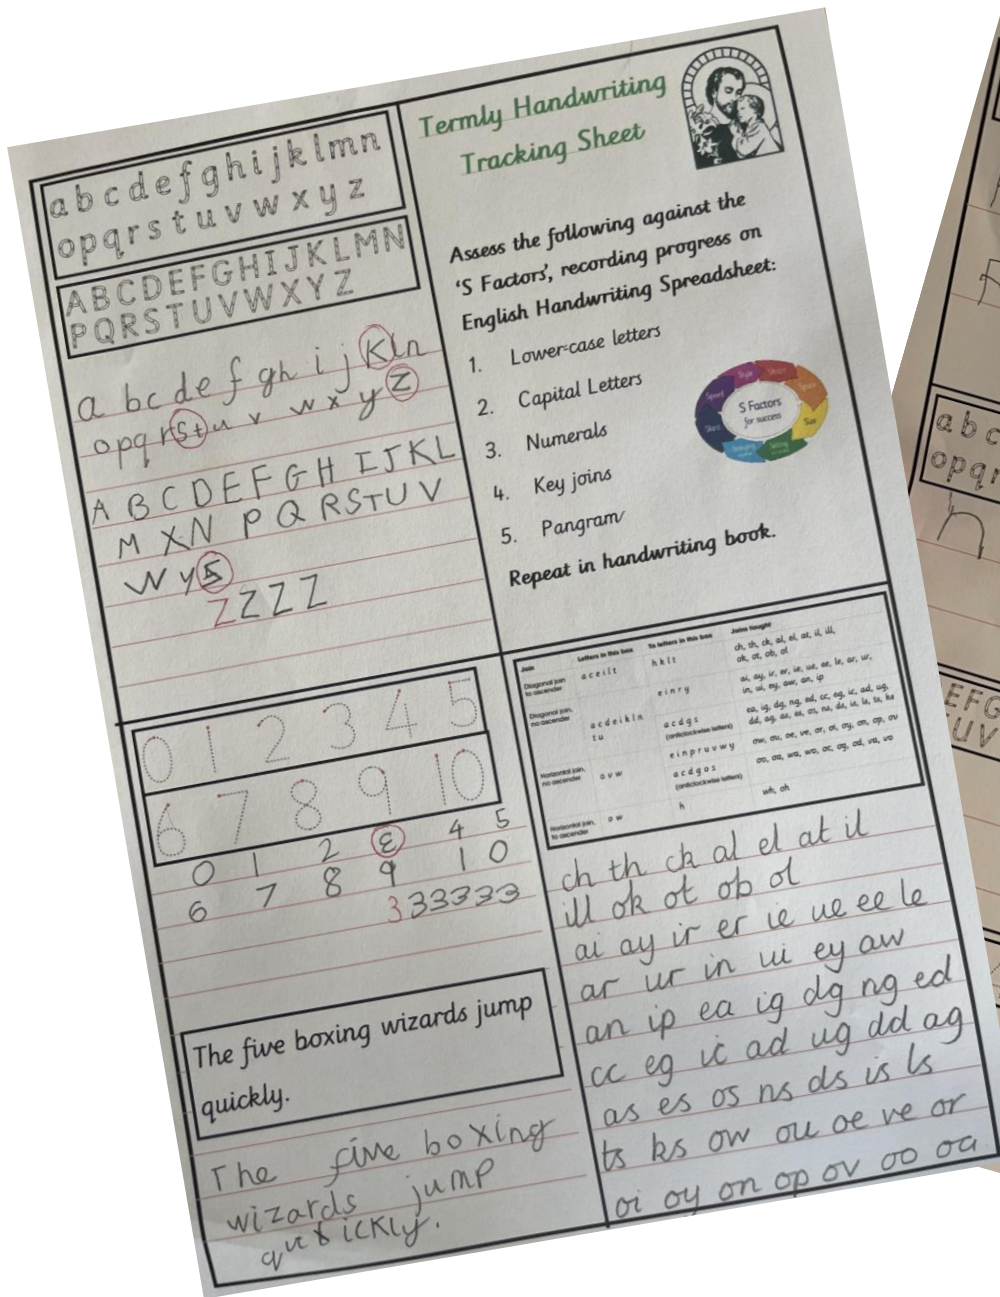 a b c d e f g h i j k l m n
o p q r s t u v w x y z
A B C D E F G H I J K L M N
P Q R S T U V W X Y Z
a b c d e f g h i j K l n
o p q r S t u v w x y Z
A B C D E F G H I J K L
M X N P Q R S T U V
W y
Z Z Z Z
Termly Handwriting
Tracking Sheet
Assess the following against the
‘S Factors’, recording progress on
English Handwriting Spreadsheet:
1. Lower-case letters
2. Capital Letters
3. Numerals
4. Key joins
5. Pangram
Repeat in handwriting book.
S Factors
for success
Speed
Style
Shape
Space
Size
0 1 2 3 4 5
6 7 8 9 10
0 1 2 Ɛ 4 5
6 7 8 9 1 0
3 3 3 3 3 3
The five boxing wizards jump
quickly.
The five boxing
wizards jump
Join Letters in this box To letters in this box Joins taught
Diagonal join to ascender a c e i l t h k l t ch, th, ck, al, el, at, il, ill,
ok, ot, ob, ol
Diagonal join, no ascender e i n r y ai, ay, ir, er, ie, ue, ee, le, ar, ur,
in, ui, ey, aw, an, ip
a c d e i k l n
t u
a c d g s
(anticlockwise letters)
ea, ig, dg, ng, ed, cc, eg, ic, ad, ug,
dd, ag, as, es, os, ns, ds, is, ls, ts, ks
Horizontal join, no ascender o v w e i n p r u v w y ow, ou, oe, ve, or, oi, oy, on, op, ov
a c d g o s
(anticlockwise letters)
oo, oa, wa, wo, oc, og, od, va, vo
Horizontal join, to ascender o w h wh, oh
ch th ck al el at il
ill ok ot ob ol
ai ay ir er ie ue ee le
ar ur in ui ey aw
an ip ea ig dg ng ed
cc eg ic ad ug dd ag
as es os ns ds is ls
ts ks ow ou oe ve or
oi oy on op ov oo oa
a b c
o p q r
n